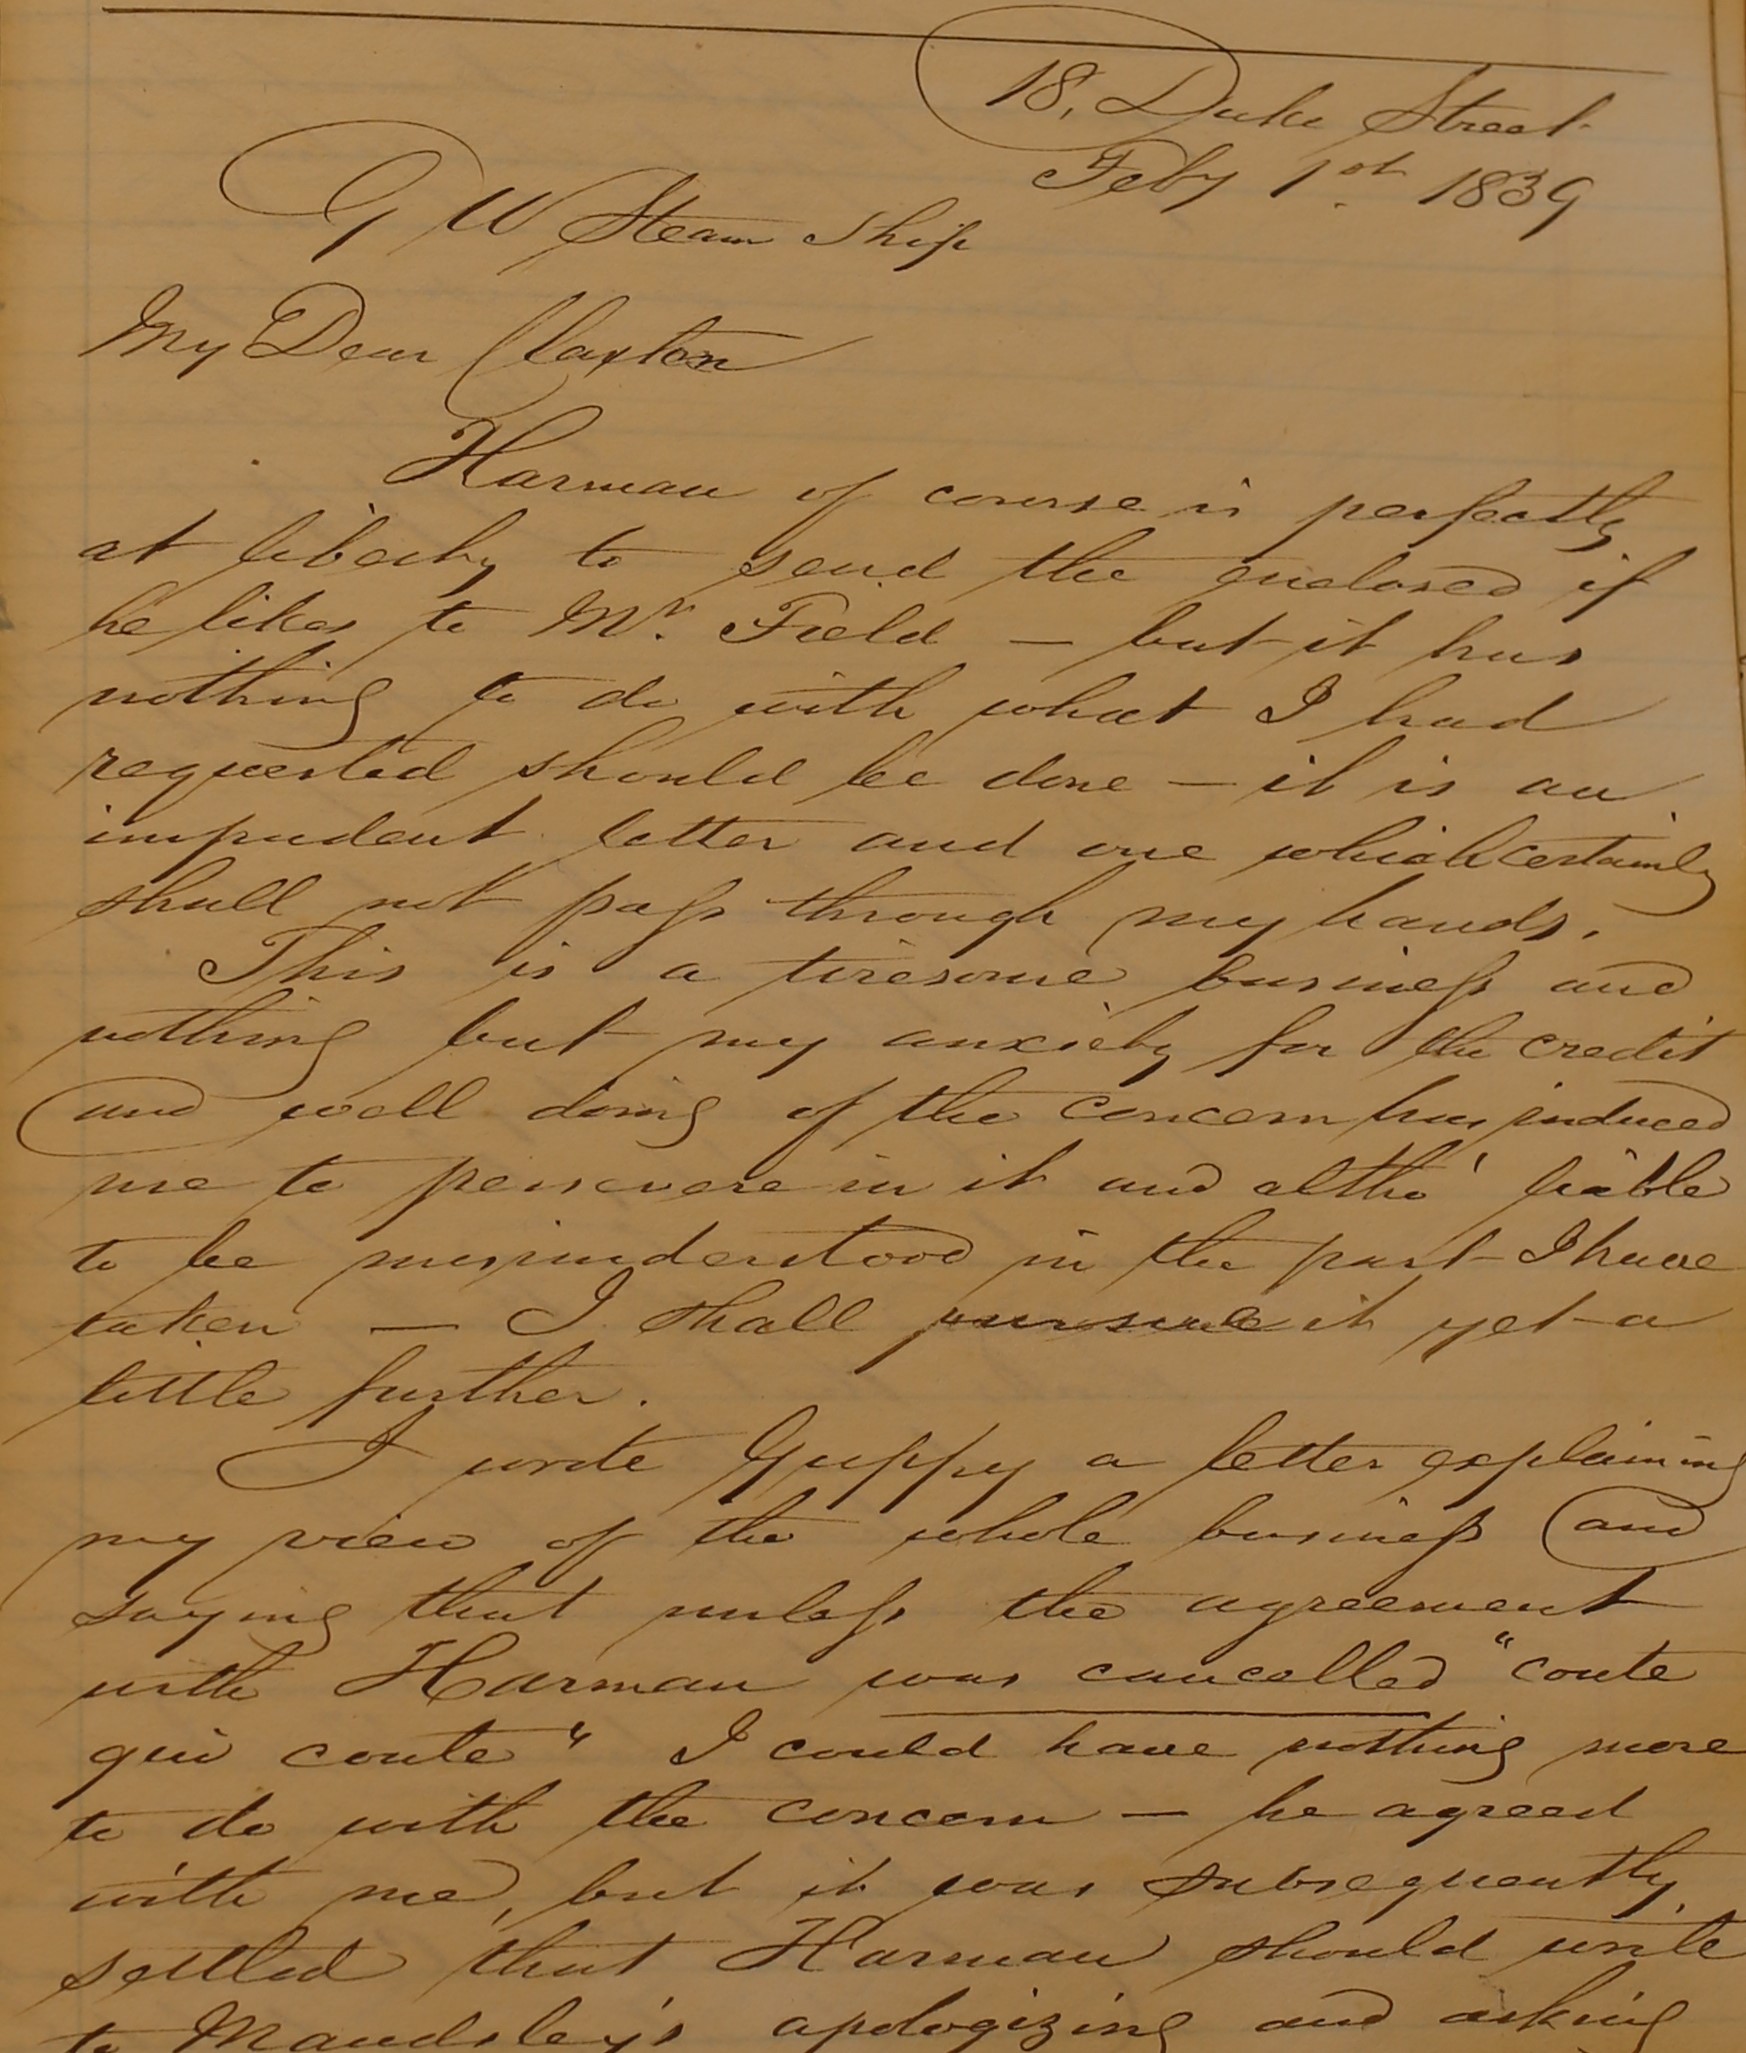 18, Duke Street
Feby 1st. 1839
G W Steam Ship
My Dear Claxton
Harman of course is perfectly
at liberty to send the enclosed if
he likes to Mr. Field — but it has
nothing to do with what I had
requested should be done — it is an
impudent letter and one which certainly
shall not pass through my hands.
This is a tiresome business and
nothing but my anxiety for the credit
and well doing of the concern has induced
me to persevere in it and altho' liable
to be misunderstood in the part I have
taken — I shall pursue it yet a
little further.
I wrote Guppy a letter explaining
my view of the whole business and
saying that unless the agreement
with Harman was cancelled "coute
qui coute" I could have nothing more
to do with the concern — he agreed
with me, but it was subsequently
settled that Harman should write
to Maudsley's apologizing and asking